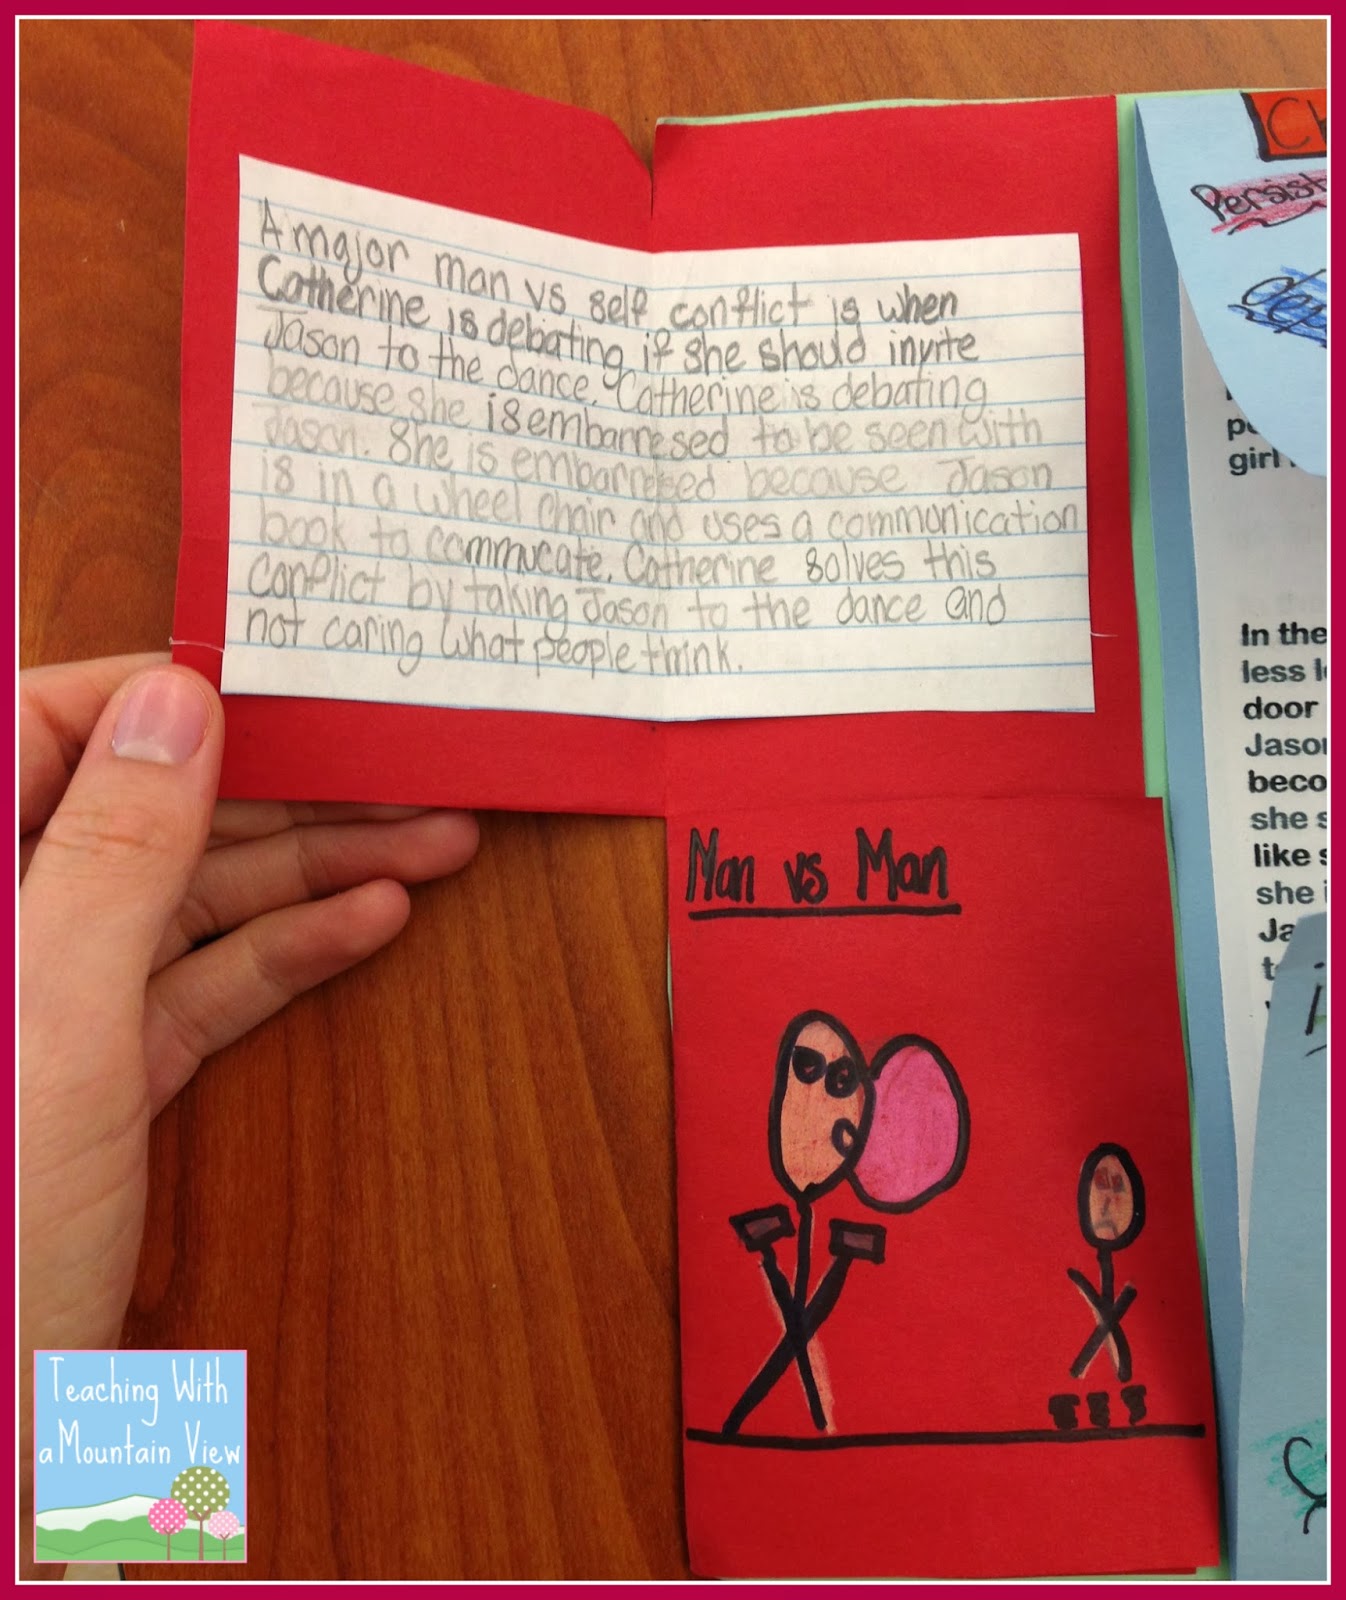 A major man vs self conflict is when
Catherine is debating if she should invite
Jason to the dance. Catherine is debating
because she is embarresed to be seen with
Jason. She is embarresed because Jason
is in a wheel chair and uses a communication
book to commucate. Catherine solves this
conflict by taking Jason to the dance and
not caring what people think.
Man vs Man
Persist
girl
In the
less
door
Jason
beco
she s
like s
she i
Ja
Teaching With
a Mountain View